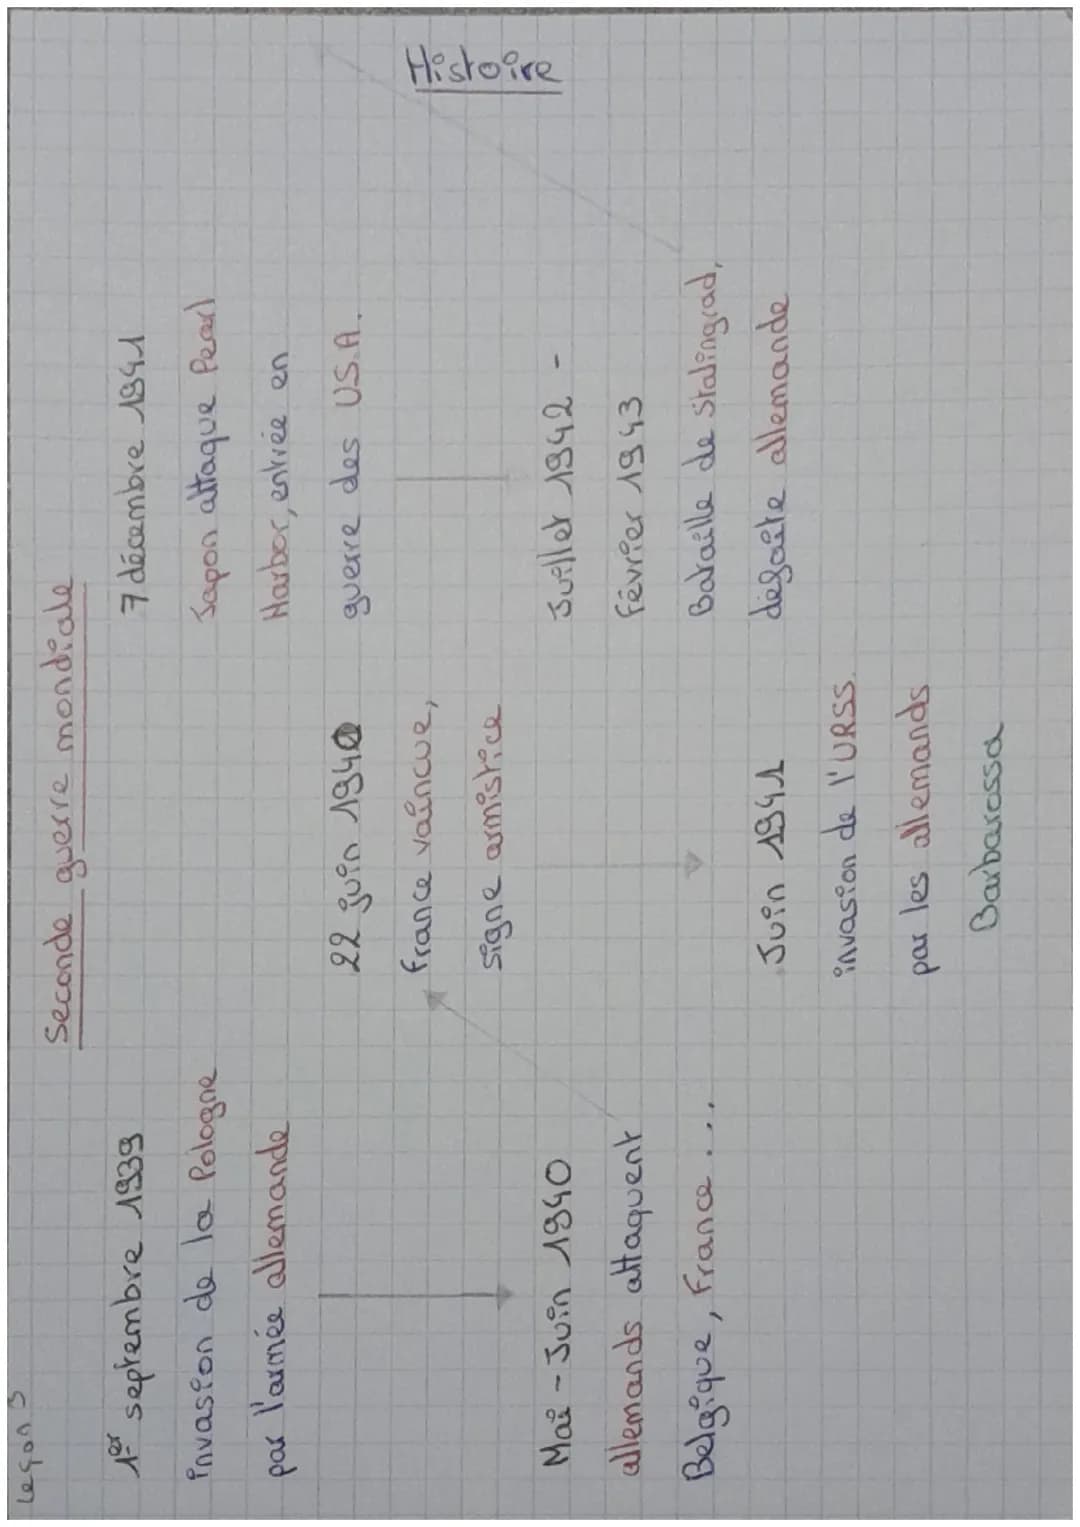 Leçon 3
Seconde guerre mondiale
Histoire
1er septembre 1939
invasion de la Pologne
par l'armée allemande
Mai - Juin 1940
allemands attaquent
Belgique, France...
22 juin 1940
France vaincue,
signe armistice
Juin 1941
invasion de l'URSS.
par les allemands
Barbarossa
7 décembre 1941
Japon attaque Pearl
Harbor, entrée en
guerre des U.S.A.
Juillet 1942 -
Février 1943
Bataille de Stalingrad,
défaite allemande